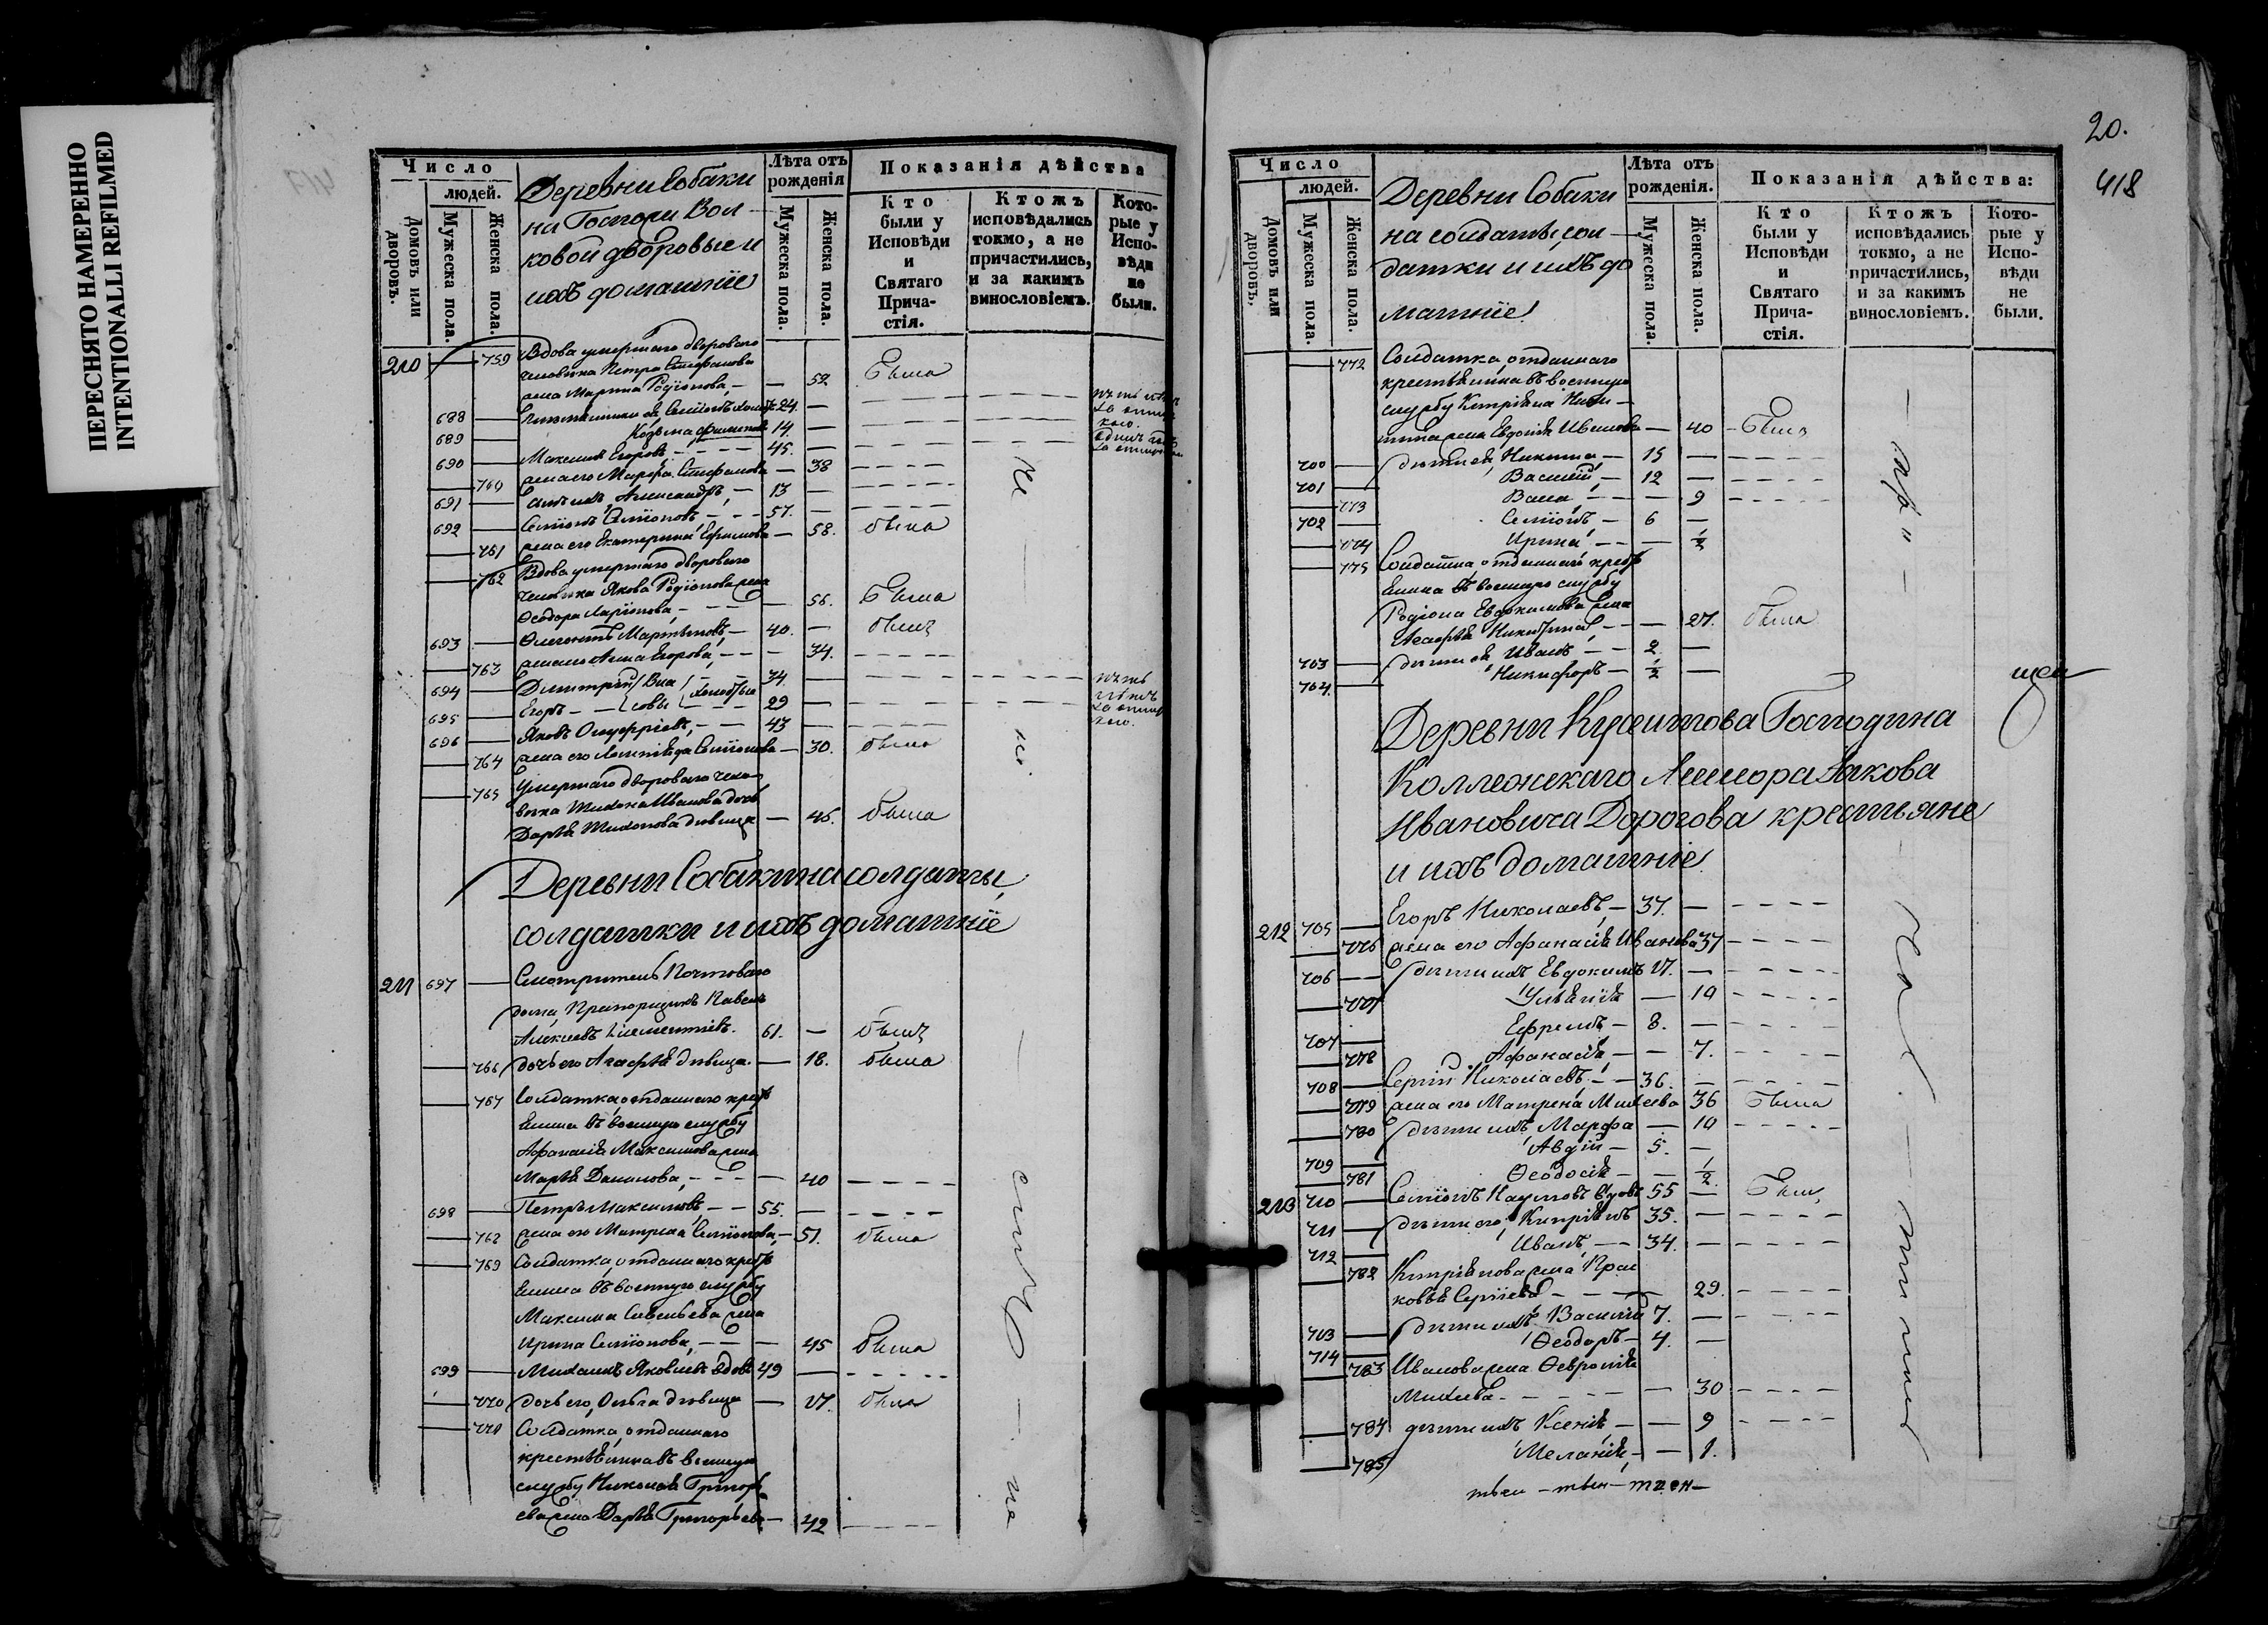 ПЕРЕСНЯТО НАМЕРЕННО
INTENTIONALLI REFILMED
Число
людей.
Домовъ или дворовъ.
Мужеска пола.
Женска пола.
Деревни Собаки
на Госпожи Вол
ковой дворовые и
ихъ домашніе
Лѣта отъ рожденія
Мужеска пола.
Женска пола.
Показанія дѣйства
Кто были у Исповѣди и Святаго Причастія.
Ктожъ исповѣдались токмо, а не причастились, и за какимъ винословіемъ.
Которые у Исповѣди не были.
210 759 Вдова умершаго двороваго
человѣка Петра Стефанова
жена Марина Родіонова 52 Была
688 24.
689 Козьма 14.
690 Максимъ Егоровъ 45.
760 жена его Марѳа Стефанова 38
691 сынъ ихъ Александръ 13
692 Семіонъ Семіоновъ 57.
761 жена его Екатерина Ефимова 58. была
762 Вдова умершаго двороваго
человѣка Якова Родіонова жена
Ѳеодора Ларіонова 56. Была
693 Мартыновъ 40. былъ
763 жена его Анна Егорова 34.
694 Димитрій 34
695 Егоръ 29
696 Яковъ Онуфріевъ 43
764 жена его Семіонова 30. была
765 Умершаго двороваго чело
вѣка Тихона Иванова дочь
Дарья Тихонова дѣвица 45. Была
Деревни Собакина солдаты,
солдатки и ихъ домашніе
211 697 Смотритель Почтоваго
дома, Прапорщикъ Павелъ
Алексѣевъ 61. былъ
766 дочь его Агафья дѣвица. 18. была
767 Солдатка, отданнаго кресть
янина въ военную службу
Афанасія Максимова жена
Марья 40
698 Петръ Максимовъ 55.
768 жена его Матрена Семіонова 51. была
769 Солдатка, отданнаго кресть
янина въ военную службу
Максима Савельева жена
Ирина Семіонова 45 была
699 Михаилъ Яковлевъ вдовъ 49
770 дочь его, Ольга дѣвица 17. была
771 Солдатка, отданнаго
крестьянина въ военную
службу Николая Григорь
ева жена Дарья Григорьева 42
20.
418
Число
людей.
Домовъ или дворовъ.
Мужеска пола.
Женска пола.
Деревни Собаки
на солдаты, сол
датки и ихъ до
машніе
Лѣта отъ рожденія.
Мужеска пола.
Женска пола.
Показанія дѣйства:
Кто были у Исповѣди и Святаго Причастія.
Ктожъ исповѣдались токмо, а не причастились, и за какимъ винословіемъ.
Которые у Исповѣди не были.
772 Солдатка, отданнаго
крестьянина въ военную
службу Кипріяна Ники
тина жена Евдокія Иванова 40 Была
700 дѣти ея, Никита 15
701 Василій 12
773 Васса 9
702 Семіонъ 6
774 Ирина ½
775 Солдатка, отданнаго кресть
янина въ военную службу
Родіона Евдокимова жена
Агафья Никитина 27. была
703 дѣти ея Иванъ 2
704. Никифоръ ½
Деревни Господина
Коллежскаго Ассесора Іакова
Ивановича Дорогова крестьяне
и ихъ домашніе
212 705 Егоръ Николаевъ 37.
776 жена его Афанасія Иванова 37
706 дѣти ихъ Евдокимъ 17.
777 Ульянія 10
707 Ефремъ 8.
778 Афанасія 7.
708 Сергій Николаевъ 36.
779 жена его Матрена Михеева 36 была
780 дѣти ихъ Марфа 10
709 Авдій 5.
781 Ѳеодосія ½
213 710 Семіонъ Наумовъ вдовъ 55 Былъ
711 дѣти его, Кипріянъ 35.
712 Иванъ 34.
782 Кипріянова жена Прас
ковья Сергіева 29.
713 дѣти ихъ Василій 7.
714 Ѳеодоръ 4.
783 Иванова жена Ѳевронія
Михеева 30
784 дѣти ихъ Ксенія 9
785 Меланія 1.